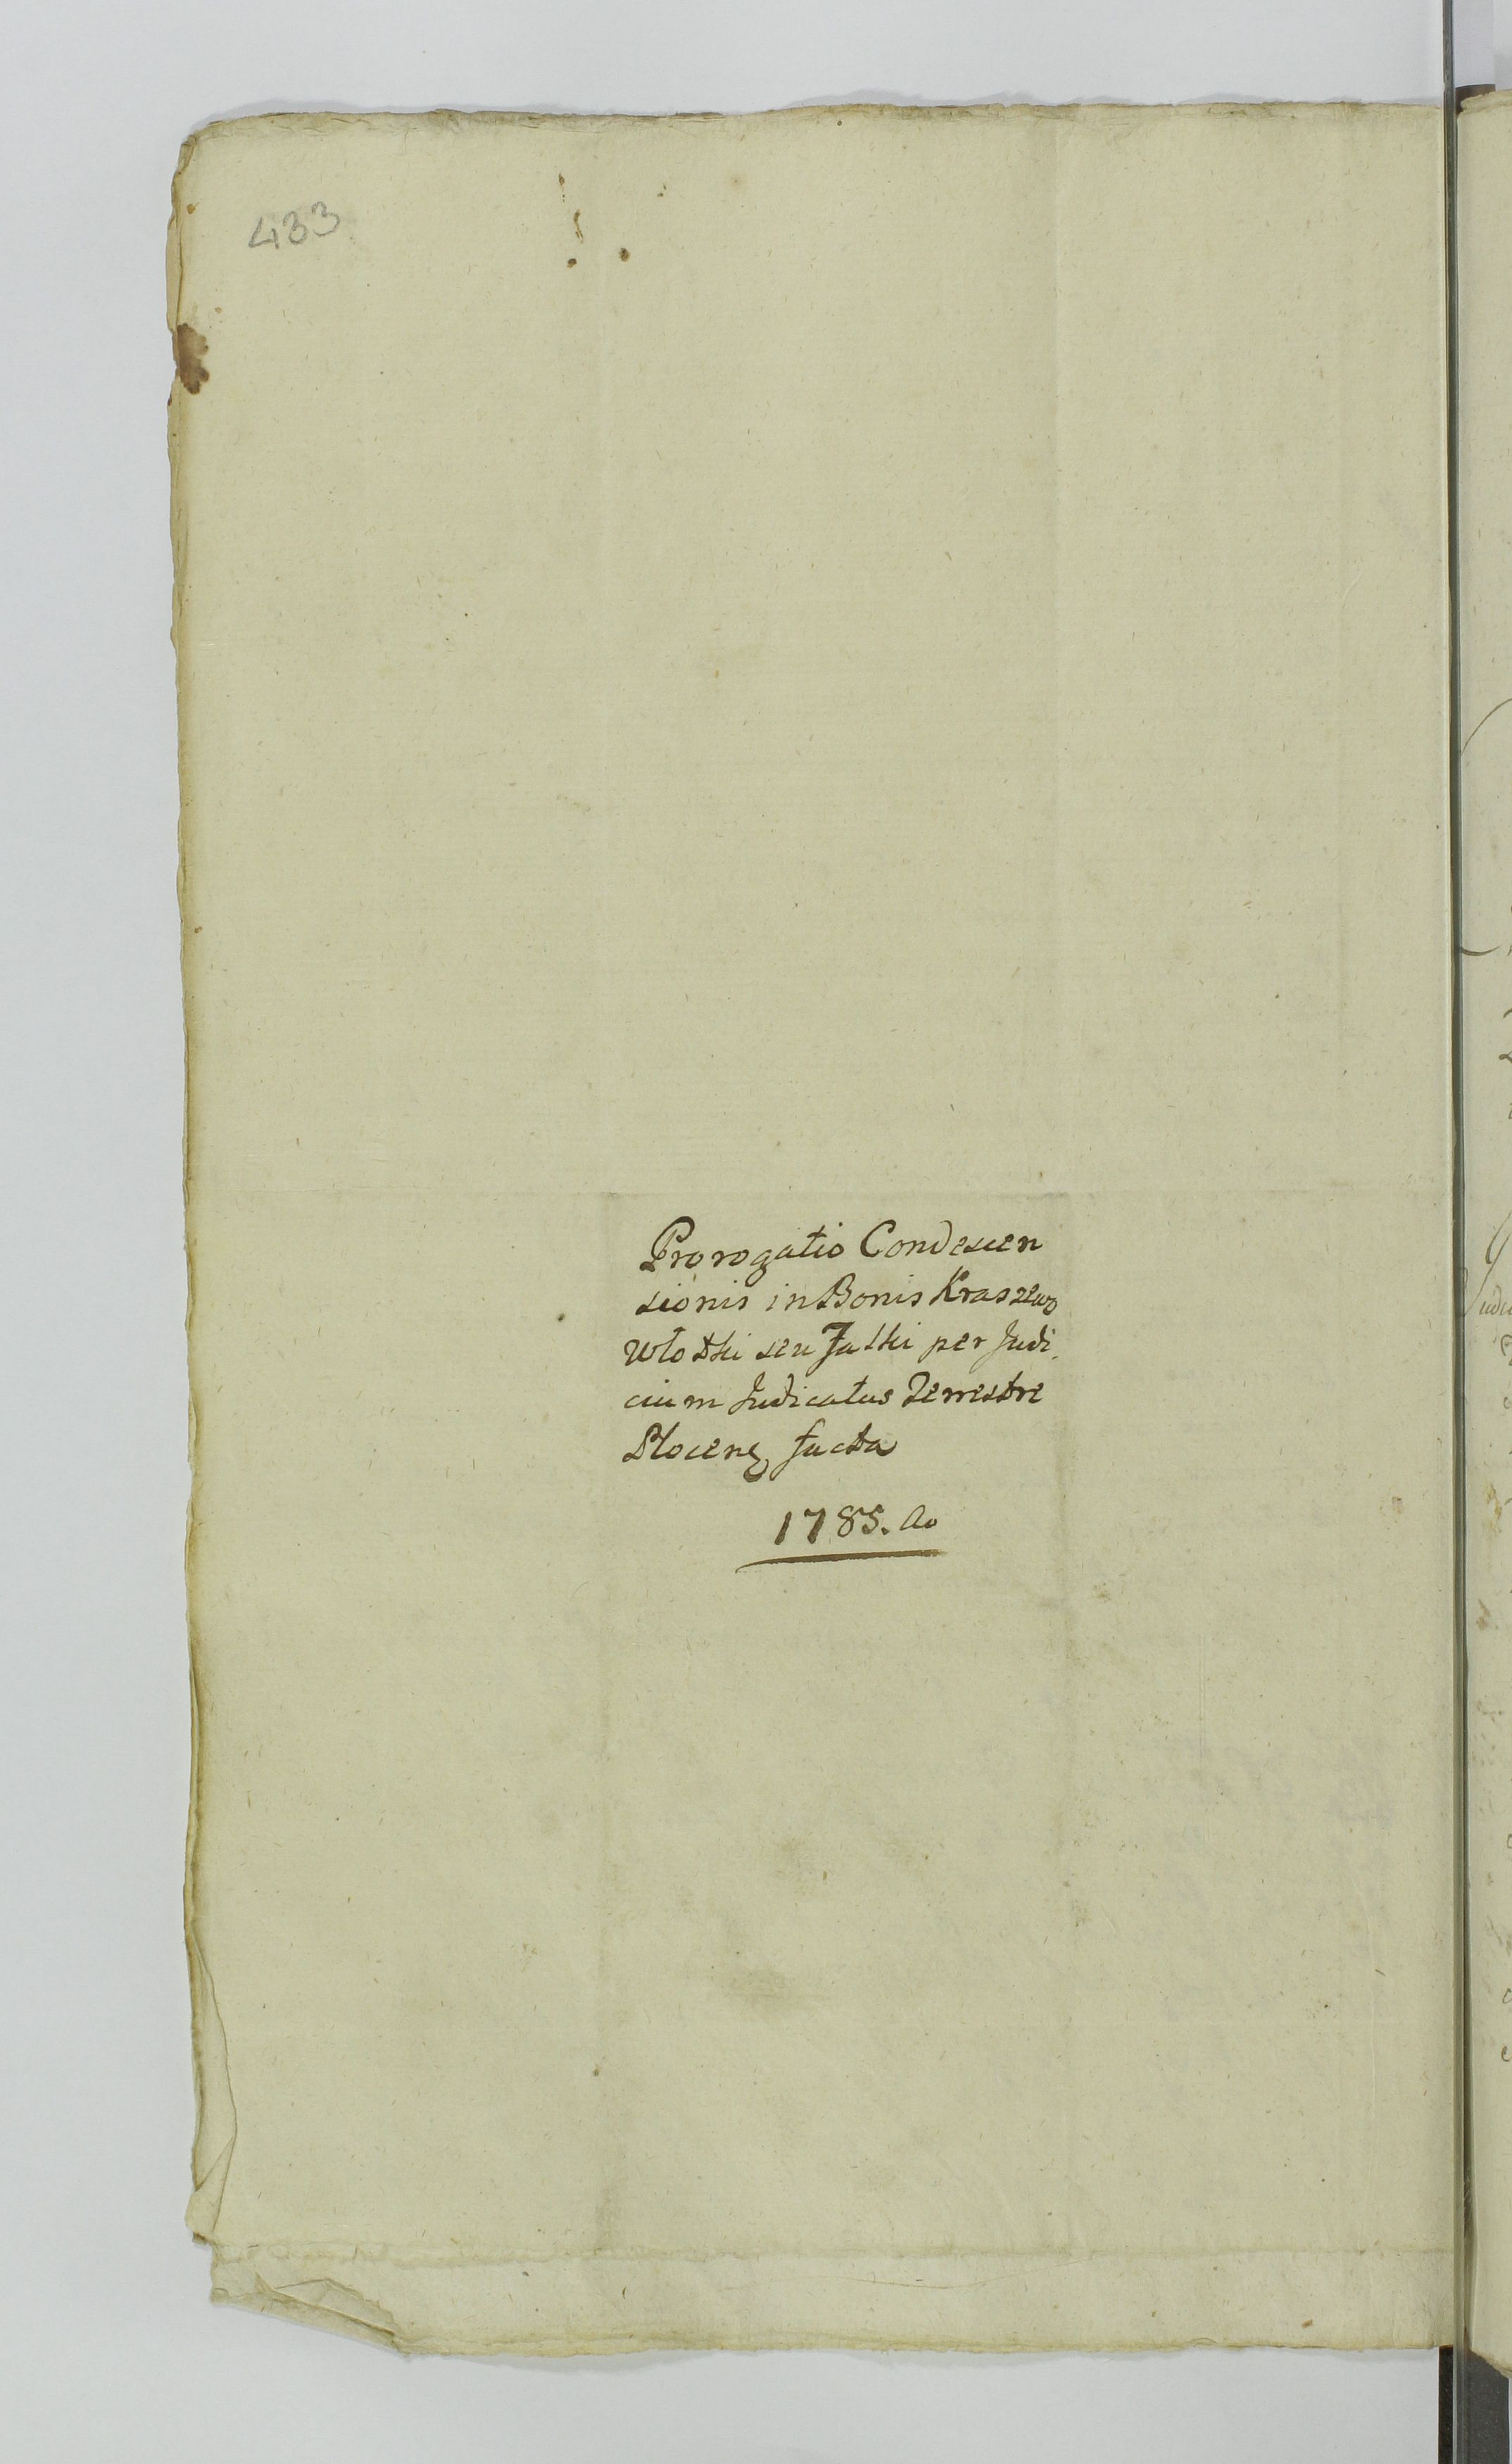 433
Prorogatio Condescen
sionis in Bonis Kraszewo
Włostki seu Jaski per Judi
cium Judicatus Terrestre
Plocens factа
1785. Ao